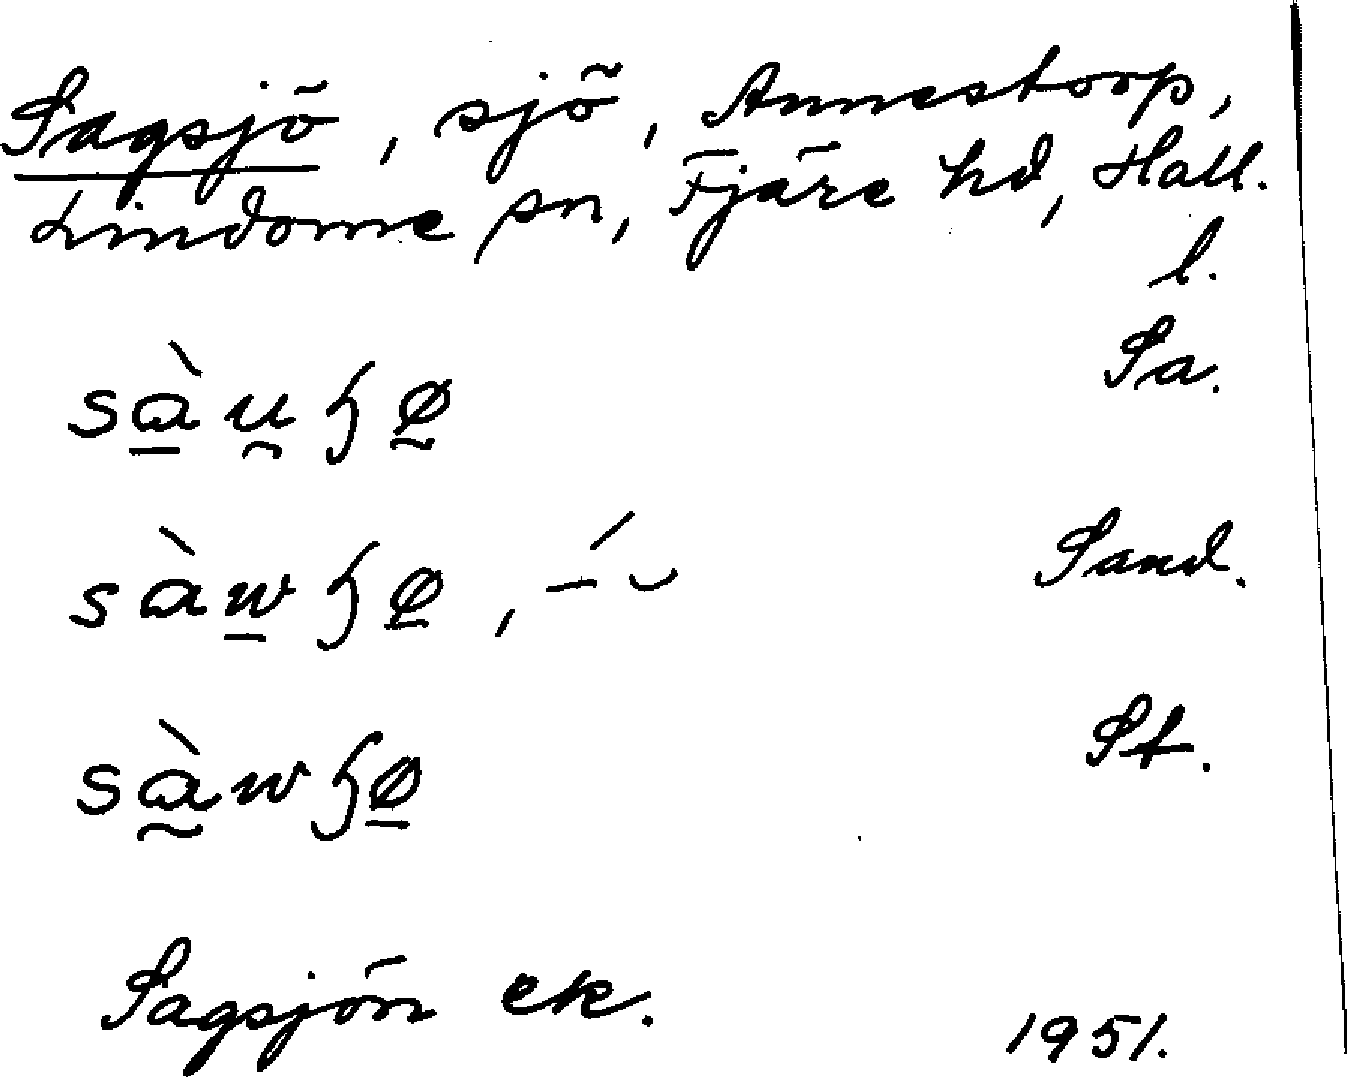 Sagsjö, sjö, Annestorp,
Lindome sn, Fjäre hd, Hall.
l.
sὰ̱u̯ɧø̰ Sa.
sὰw̱ɧø̱, –́ ᴗ Sand.
sὰ̰wɧø̱ St.
Sagsjön ek.
1951.